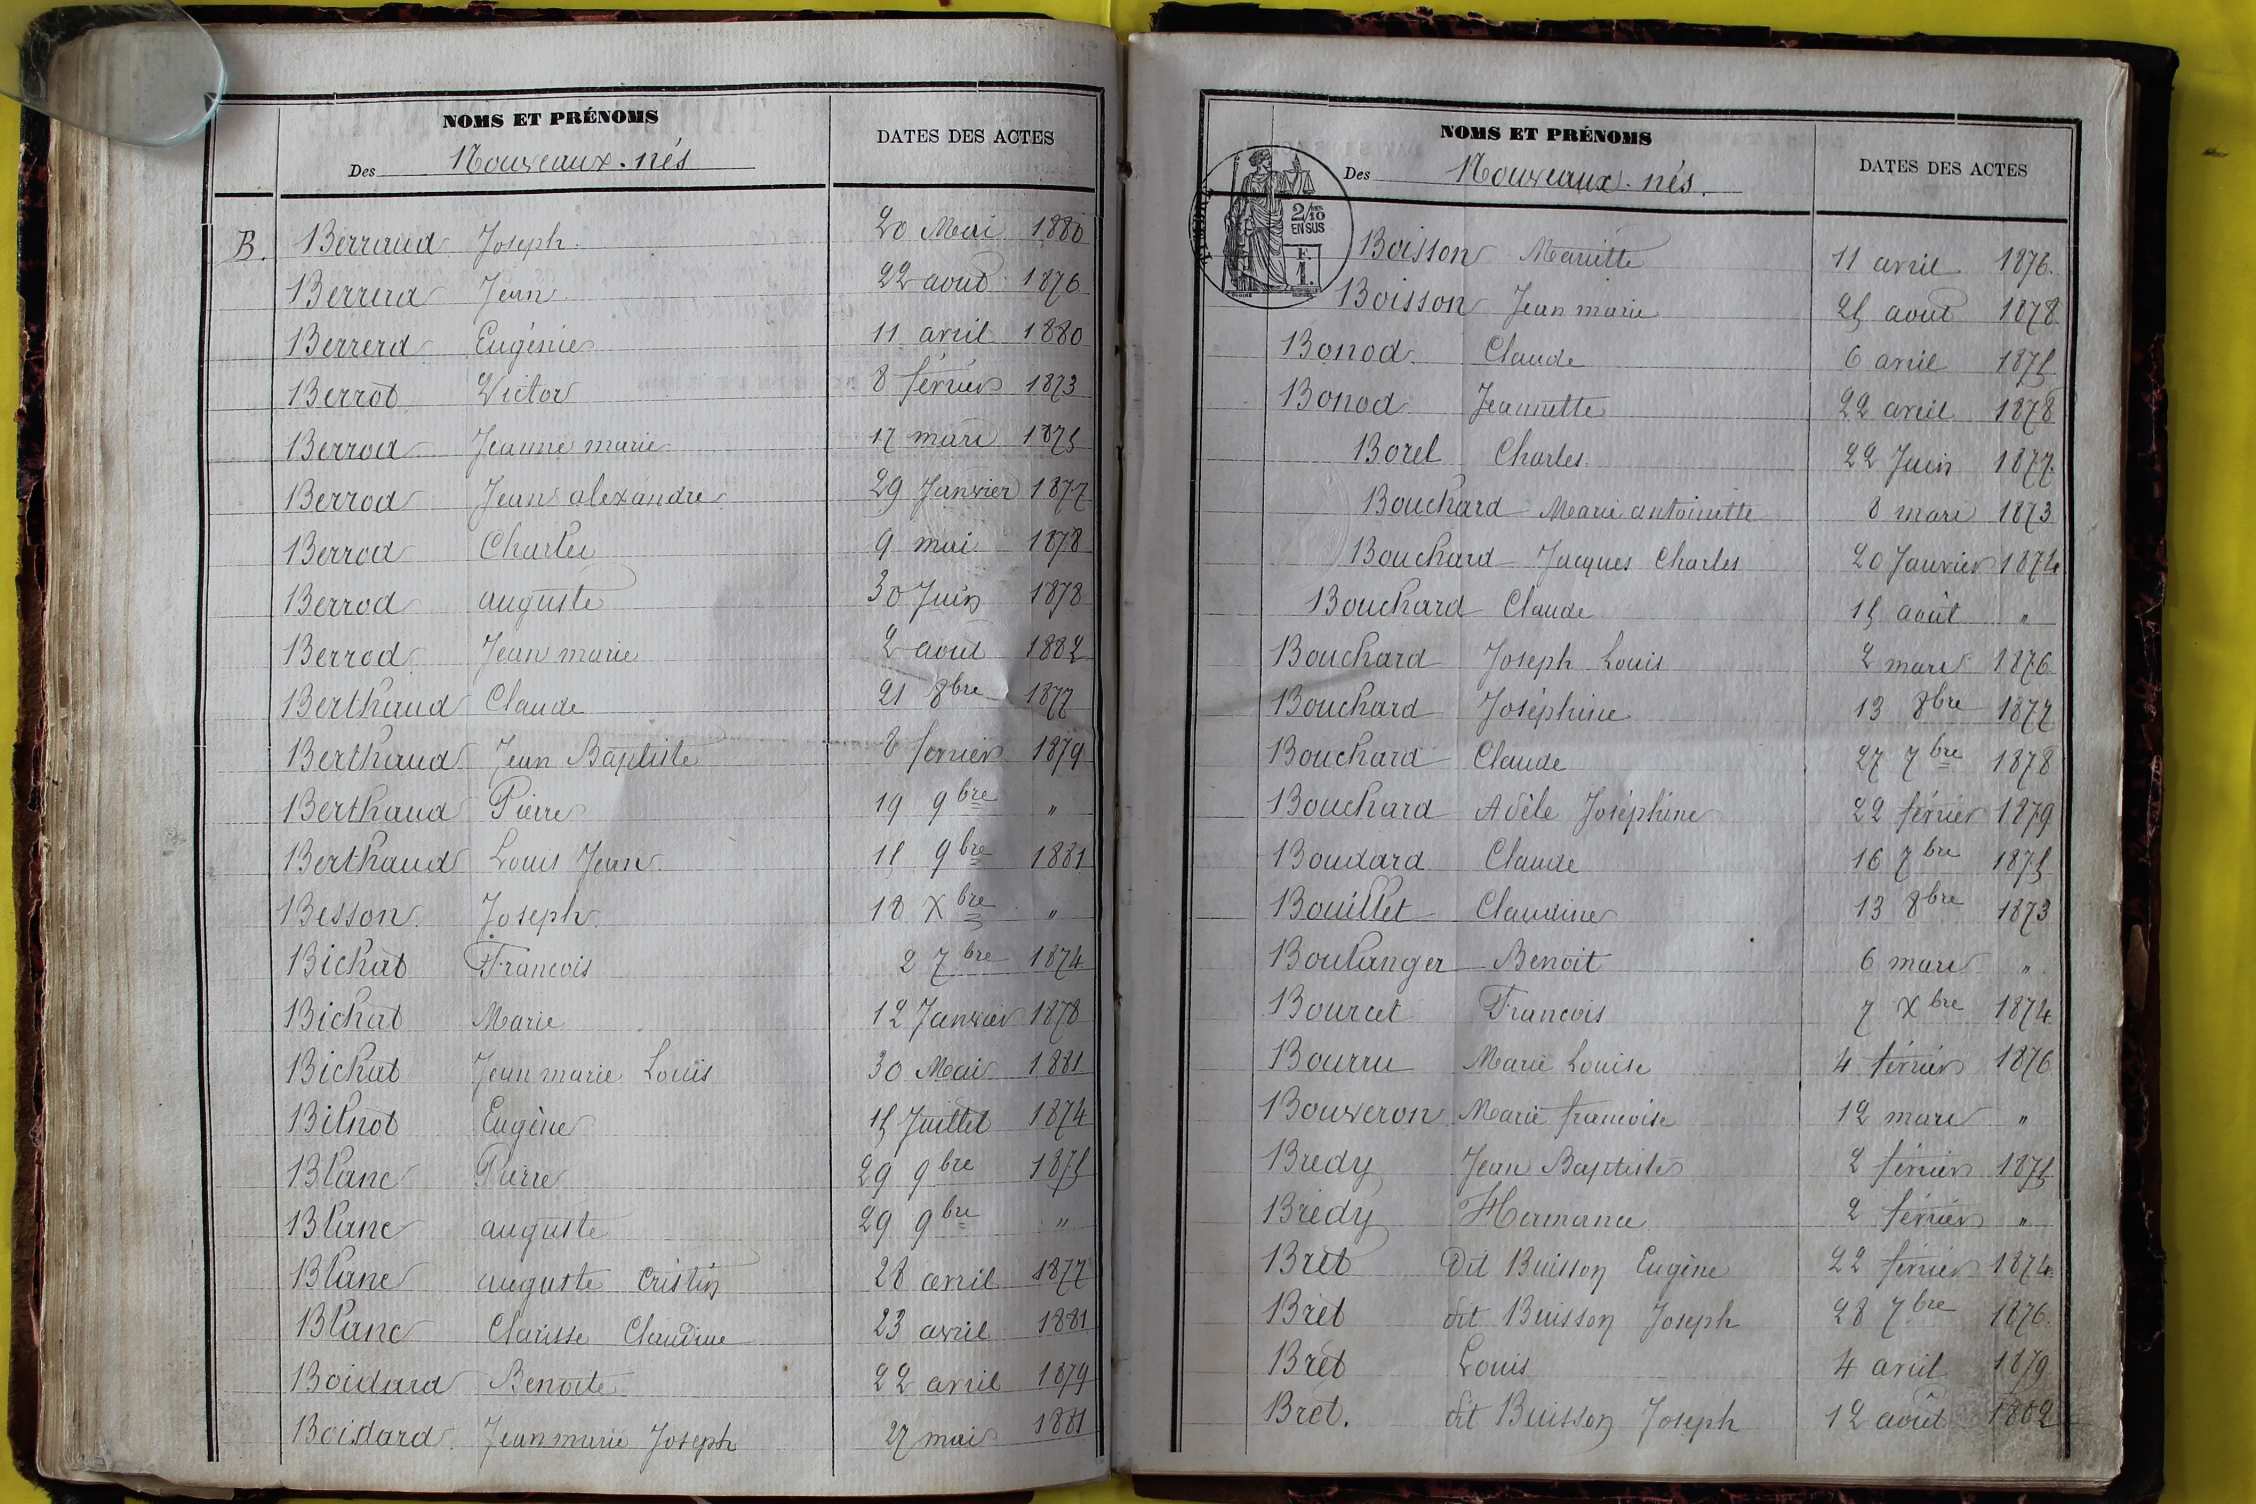 NOMS ET PRÉNOMS
DATES DES ACTES
Des Nouveaux-nés
B. Berraud Joseph 20 Mai 1880
Berrerd Jean 22 août 1876
Berrerd Eugénie 11 avril 1880
Berrot Victor 8 février 1873
Berrod Jeanne marie 17 mars 1875
Berrod Jean alexandre 29 Janvier 1877
Berrod Charles 9 mai 1878
Berrod auguste 30 Juin 1878
Berrod Jean marie 2 août 1882
Berthaud Claude 21 8bre 1877
Berthaud Jean Baptiste 8 février 1879
Berthaud Pierre 19 9bre "
Berthaud Louis Jean 15 9bre 1881
Besson Joseph 18 Xbre "
Bichat Francois 2 7bre 1874
Bichat Marie 12 Janvier 1878
Bichat Jean marie Louis 30 Mai 1881
Bilnot Eugène 15 Juillet 1874
Blanc Pierre 29 9bre 1875
Blanc auguste 29 9bre "
Blanc auguste Cristin 28 avril 1877
Blanc Clarisse Claudine 23 avril 1881
Boidard Benoite 22 avril 1879
Boidard Jean marie Joseph 27 mai 1881
NOMS ET PRÉNOMS
DATES DES ACTES
Des Nouveaux-nés.
2/10
EN SUS
F.
1.
Boisson Mariette 11 avril 1876.
Boisson Jean marie 25 août 1878
Bonod Claude 6 avril 1875
Bonod Jeannette 22 avril 1878
Borel Charles 22 Juin 1877
Bouchard Marie antoinette 8 mars 1873
Bouchard Jacques Charles 20 Janvier 1874
Bouchard Claude 15 août "
Bouchard Joseph Louis 2 mars 1876
Bouchard Joséphine 13 8bre 1877
Bouchard Claude 27 7bre 1878
Bouchard Adèle Joséphine 22 février 1879
Boudard Claude 16 7bre 1875
Bouillet Claudine 13 8bre 1873
Boulanger Benoit 6 mars "
Bourcet Francois 7 Xbre 1874
Bourru Marie Louise 4 février 1876
Bouveron Marie francoise 12 mars "
Bredy Jean Baptiste 2 février 1875
Bredy Hermance 2 février "
Bret dit Buisson Eugène 22 février 1874
Bret dit Buisson Joseph 28 7bre 1876.
Bret Louis 4 avril 1879
Bret. dit Buisson Joseph 12 août 1882